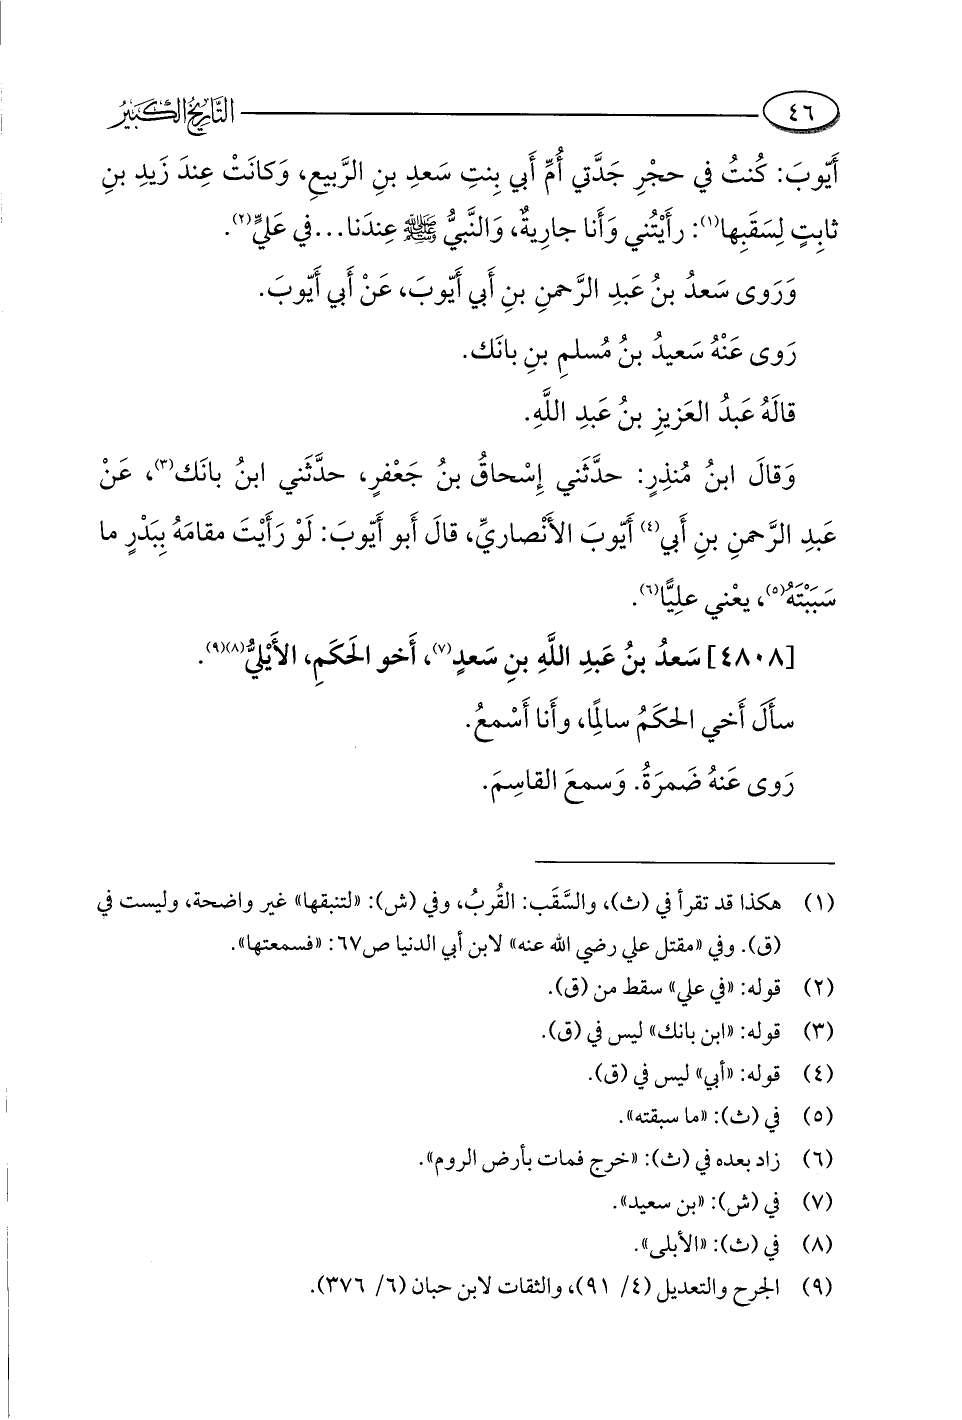 ٤٦ التاريخ الكبير
أَيّوبَ: كُنتُ في حجْرِ جَدَّتي أُمِّ أَبي بِنتِ سَعدِ بنِ الرَّبيعِ، وَكانَتْ عِندَ زَيدِ بنِ
ثابِتٍ لِسَقَبِها(١): رأَيْتُني وَأَنا جاريةٌ، وَالنَّبيُّ ﷺ عِندَنا... في عَليٍّ(٢).
وَرَوى سَعدُ بنُ عَبدِ الرَّحمنِ بنِ أَبي أَيّوبَ، عَنْ أَبي أَيّوبَ.
رَوى عَنْهُ سَعيدُ بنُ مُسلمِ بنِ بانَك.
قالَهُ عَبدُ العَزيزِ بنُ عَبدِ اللَّهِ.
وَقالَ ابنُ مُنذِرٍ: حدَّثَني إِسْحاقُ بنُ جَعْفرٍ، حدَّثَني ابنُ بانَك(٣)، عَنْ
عَبدِ الرَّحمنِ بنِ أَبي(٤) أَيّوبَ الأَنْصاريِّ، قالَ أَبو أَيّوبَ: لَوْ رَأَيْتَ مقامَهُ بِبَدْرٍ ما
سَبَبْتَهُ(٥)، يعْني علِيًّا(٦).
[٤٨٠٨] سَعدُ بنُ عَبدِ اللَّهِ بنِ سَعدٍ(٧)، أَخو الحَكَمِ، الأَيْليُّ(٨)(٩).
سأَلَ أَخي الحكَمُ سالِمًا، وأَنا أَسْمعُ.
رَوى عَنهُ ضَمرَةُ. وَسمعَ القاسِمَ.
(١) هكذا قد تقرأ في (ث)، والسَّقَب: القُربُ، وفي (ش): «لتنبقها» غير واضحة، وليست في
(ق). وفي «مقتل علي رضي الله عنه» لابن أبي الدنيا ص٦٧: «فسمعتها».
(٢) قوله: «في علي» سقط من (ق).
(٣) قوله: «ابن بانك» ليس في (ق).
(٤) قوله: «أبي» ليس في (ق).
(٥) في (ث): «ما سبقته».
(٦) زاد بعده في (ث): «خرج فمات بأرض الروم».
(٧) في (ش): «بن سعيد».
(٨) في (ث): «الأبلى».
(٩) الجرح والتعديل (٤/ ٩١)، والثقات لابن حبان (٦/ ٣٧٦).